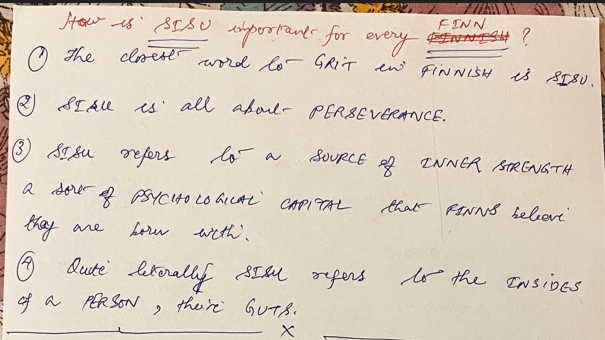 How is SISU important for every FINNISH FINN ?
① The closest word to GRIT in FINNISH is SISU.
② SISU is all about PERSEVERANCE.
③ SISU refers to a SOURCE of INNER STRENGTH
a sort of PSYCHOLOGICAL CAPITAL that FINNS believe
they are born with.
④ Quite literally SISU refers to the INSIDES
of a PERSON, their GUTS.
X